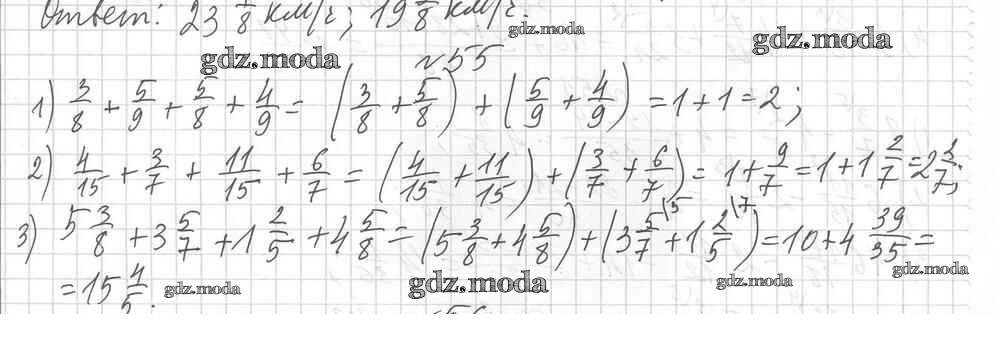 Ответ: 23 1/8 км/ч; 19 /8 км/ч.
gdz.moda
gdz.moda
gdz.moda
№55
1) 3/8 + 5/9 + 5/8 + 4/9 = (3/8 + 5/8) + (5/9 + 4/9) = 1 + 1 = 2;
2) 4/15 + 3/7 + 11/15 + 6/7 = (4/15 + 11/15) + (3/7 + 6/7) = 1 + 9/7 = 1 + 1 2/7 = 2 2/7;
3) 5 3/8 + 3 5/7 + 1 2/5 + 4 5/8 = (5 3/8 + 4 5/8) + (3 5/7 \5 + 1 2/5 \7) = 10 + 4 39/35 =
= 15 4/5.
gdz.moda
gdz.moda
gdz.moda
gdz.moda